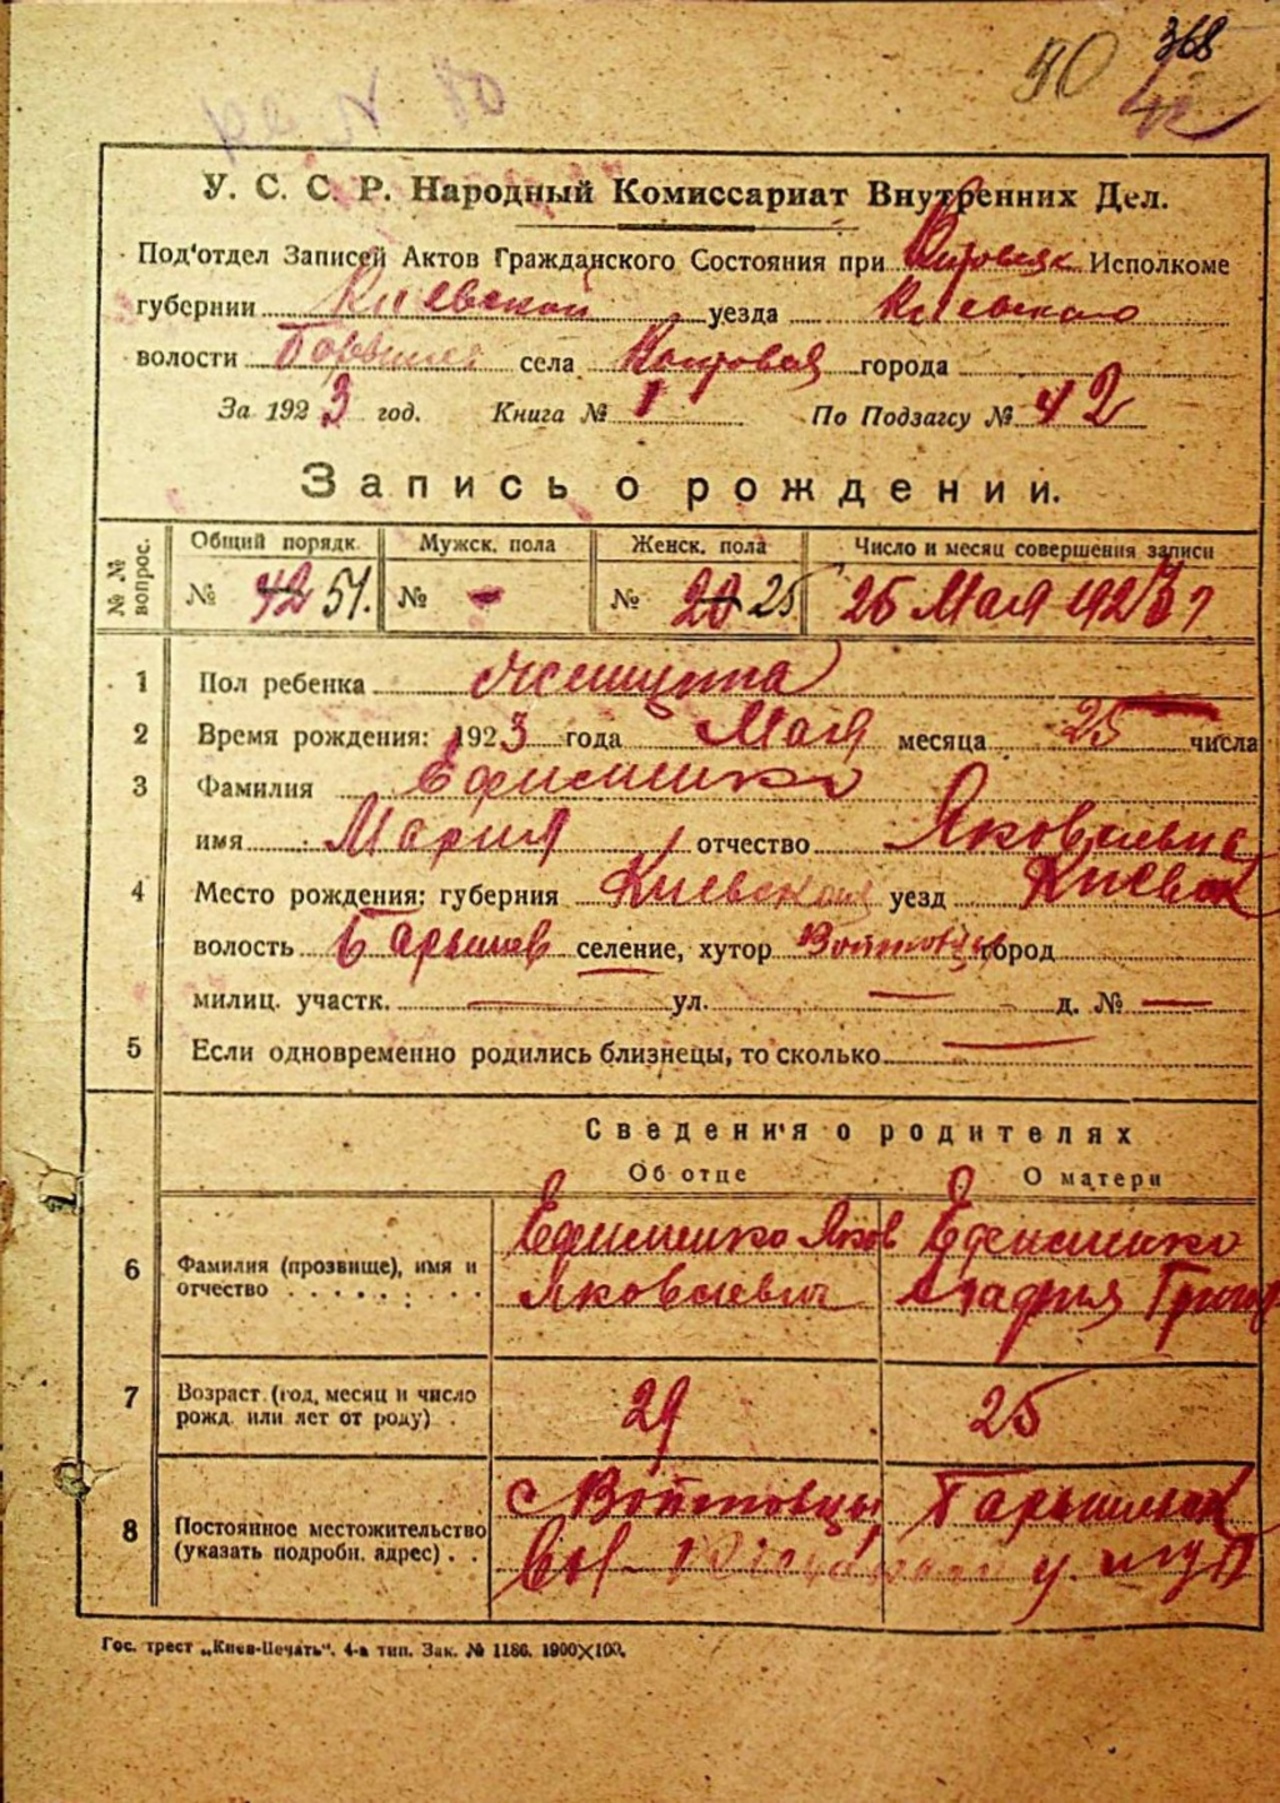 368
40
№ 80
У. С. С. Р. Народный Комиссариат Внутренних Дел.
Под'отдел Записей Актов Гражданского Состояния при Исполкоме
губернии Киевской уезда Киевского
волости села города
За 1923 год. Книга № 1 По Подзагсу № 42
Запись о рождении.
№ № вопрос. Общий порядк. Мужск. пола Женск. пола Число и месяц совершения записи
№ 42 51. № - № 20 25 25 Мая 1923
1 Пол ребенка
2 Время рождения: 1923 года Мая месяца 25 числа
3 Фамилия Ефименко
имя Мария отчество Яковлевна
4 Место рождения: губерния Киевская уезд Киевск
волость Барышев селение, хутор Войтовцы город
милиц. участк. — ул. — д. № —
5 Если одновременно родились близнецы, то сколько —
Сведения о родителях
Об отце О матери
6 Фамилия (прозвище), имя и отчество . . . . . . . . Ефименко Яков Яковлевич Ефименко Агафия Григор
7 Возраст (год, месяц и число рожд. или лет от роду) . 29 25
8 Постоянное местожительство (указать подробн. адрес) . . с Войтовцы Барышевск
Гос. трест „Киев-Печать". 4-я тип. Зак. № 1186. 1900×100.